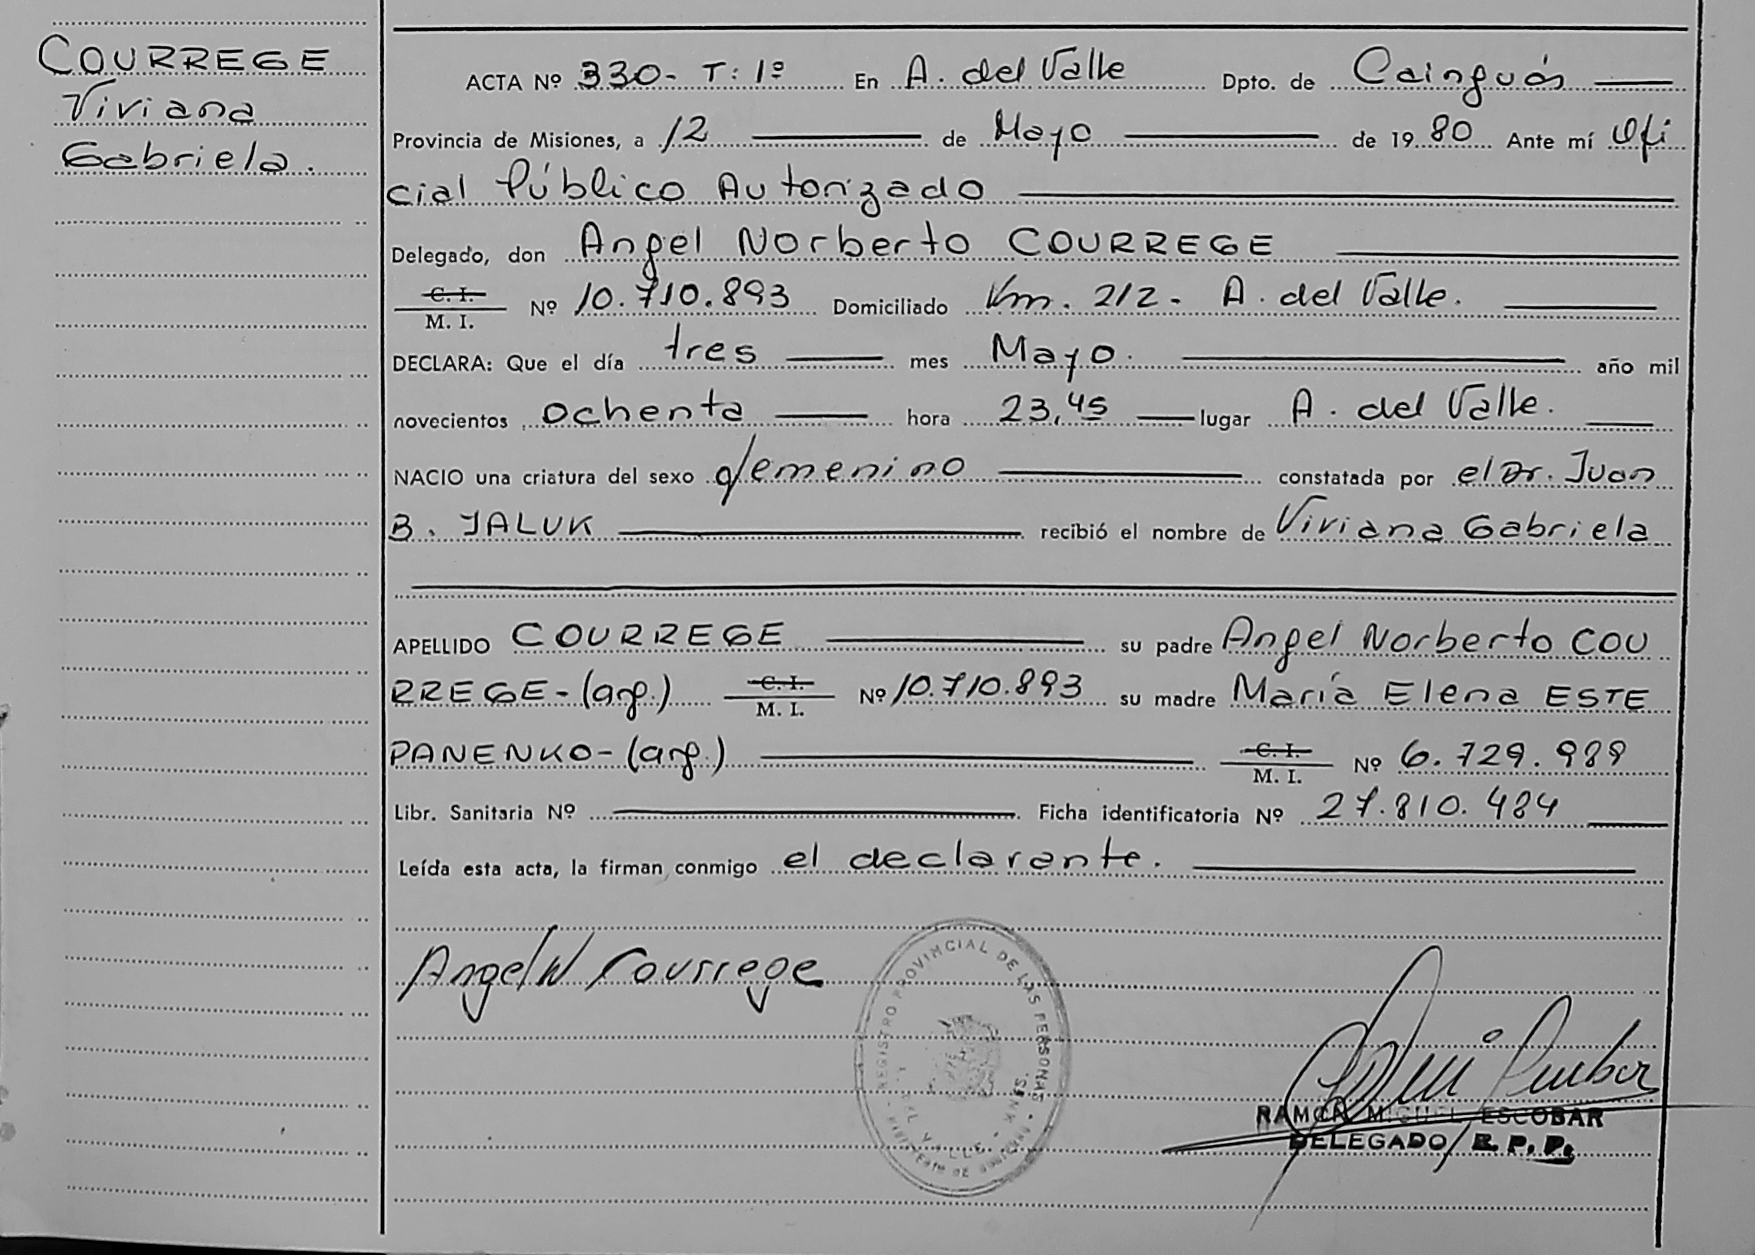 COURREGE
Viviana
Gabriela.
ACTA Nº 330- T: 1º En A. del Valle Dpto. de Cainguás
Provincia de Misiones, a 12 de Mayo de 1980 Ante mí Ofi
cial Público Autorizado
Delegado, don Angel Norberto COURREGE
C. I.
M. I. Nº 10.710.893 Domiciliado Km. 212- A. del Valle.
DECLARA: Que el día tres mes Mayo. año mil
novecientos ochenta hora 23,45 lugar A. del Valle.
NACIO una criatura del sexo femenino constatada por el Dr. Juan
B. JALUK recibió el nombre de Viviana Gabriela
APELLIDO COURREGE su padre Angel Norberto COU
RREGE-(arg.) C. I. M. I. Nº 10.710.893 su madre María Elena ESTE
PANENKO-(arg.) C. I. M. I. Nº 6.729.989
Libr. Sanitaria Nº Ficha identificatoria Nº 27.810.484
Leída esta acta, la firman conmigo el declarante.
Angel N Courrege
REGISTRO PROVINCIAL DE LAS PERSONAS
RAMON MIGUEL ESCOBAR
DELEGADO R. P. P.